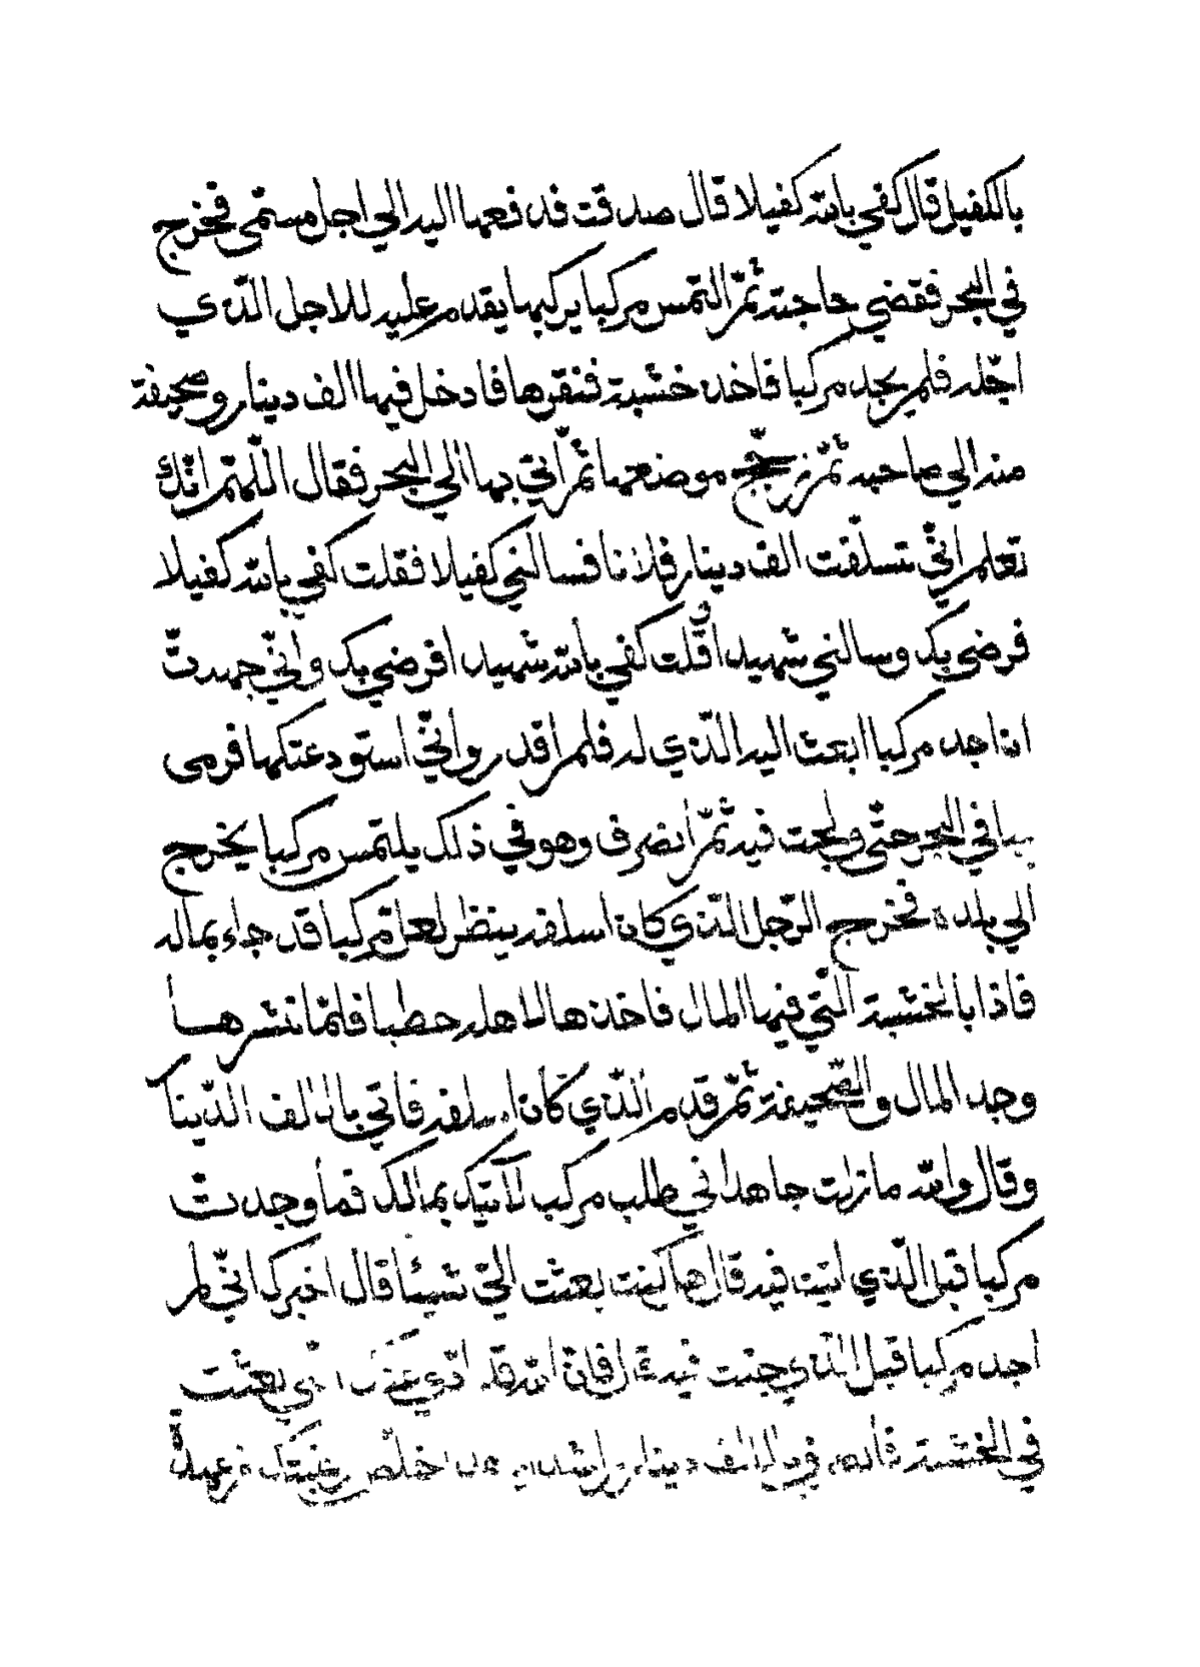 بالكفيل قال كفي بالله كفيلا قال صدقت فدفعها اليه الي اجل مسمّى فخرج
في البحر فقضي حاجته ثمّ التمس مركبا يركبها يقدم عليه للاجل الّذي
اجّله فلم يجد مركبا فاخذ خشبة فنقرها فادخل فيها الف دينار وصحيفة
منه الي صاحبه ثمّ زجّج موضعها ثمّ اتي بها الي البحر فقال اللّهمّ انّك
تعلم انّي تسلّفت الف دينار فلانا فسالني كفيلا فقلت كفي بالله كفيلا
فرضي بك وسالني شهيدا فقلت كفي بالله شهيدا فرضي بك وانّي جهدت
ان اجد مركبا ابعث اليه الّذي له فلم اقدر وانّي استودعتكها فرمى
بها في البحر حتّي ولجت فيه ثمّ انصرف وهو في ذلك يلتمس مركبا يخرج
الي بلده فخرج الرّجل الّذي كان اسلفه ينظر لعلّ مركبا قد جاء بماله
فاذا بالخشبة الّتي فيها المال فاخذها لاهله حطبا فلمّا نشرها
وجد المال والصّحيفة ثمّ قدم الّذي كان اسلفه فاتي بالالف الدّينار
وقال والله ما زلت جاهدا في طلب مركب لآتيك بمالك فما وجدت
مركبا قبل الّذي اتيت فيه قال هل كنت بعثت الىّ شيئا قال اخبرك انّي لم
اجد مركبا قبل الّذي جئت فيه قال فانّ الله قد ادّي عنك الّذي بعثت
في الخشبة فانصرف بالالف دينار راشدا من اخلص